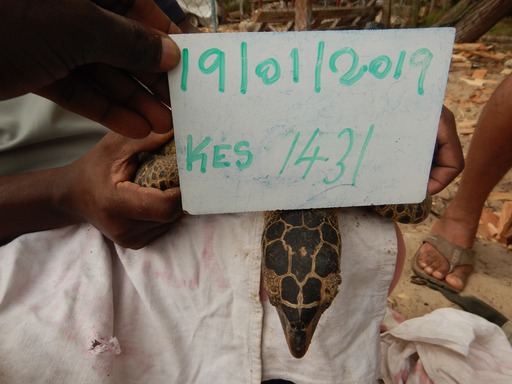 19/01/2019
KES 1431